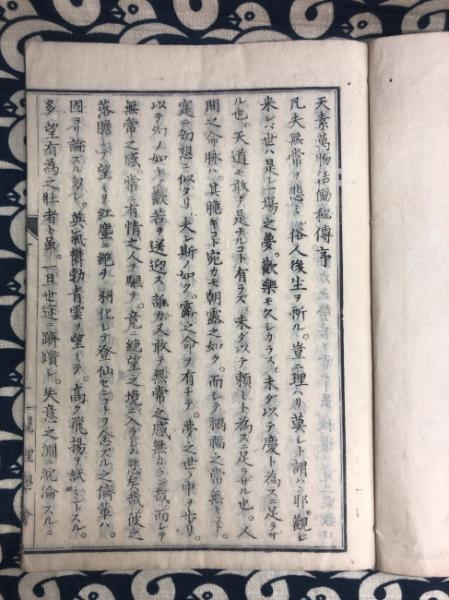 天素萬物活動秘傳序
凡夫無常ヲ悲ミ俗人後生ヲ祈ル。豈ニ理ハリ莫シト謂ハン耶。觀シ
來レバ世ハ是レ一場之夢。歡樂モ久シカラス。未タ以テ慶ト為スニ足ラザ
ル也。天道モ敢テ是ナルコト有ラズ。未タ以テ賴ミト為スニ足ラサル也。人
間之命脉ハ其脆キコト宛カモ朝露之如ク。而シテ禍福之常無キコト。
寔ニ幻想ニ似タリ。夫レ斯ノ如ク。露之命ヲ有チテ。夢之世ノ中ヲ歩リ。
以テ幻ノ如キ歡苦ヲ送迎ス。誰カ又敢テ無常之感無カラン哉。而シテ
無常之感。常ニ有情之人ヲ驅テ。竟ニ絶望之境ニ入ラシム。悲矣哉。彼之
落膽シテ望ミヲ紅塵ニ絶チ。羽化シテ登仙センコトヲ念ズル之儔輩ハ。
固ヨリ論ズル勿レ。英氣欝勃青雲ヲ望ミテ。高ク飛揚ヲ試ミントスル。
多望有為之壯者ト雖。一日世途ニ躋蹟シ。失意之淵ニ沉淪スルニ